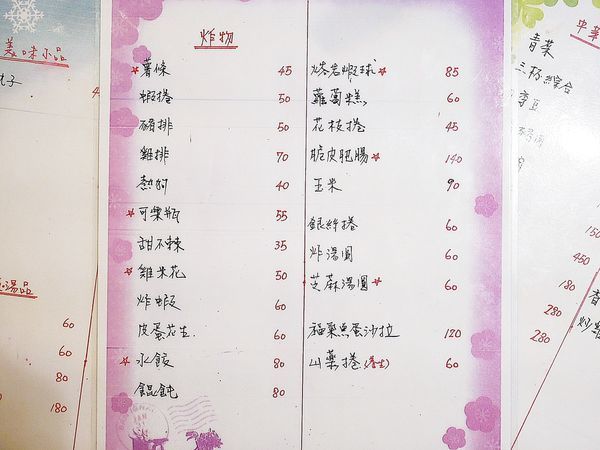 美味小品
60
60
80
180
炸物
★薯條 45
蝦捲 50
豬排 50
雞排 70
熱狗 40
★可樂餅 55
甜不辣 35
★雞米花 50
炸蝦 60
皮蛋花生 60
★水餃 80
餛飩 80
烘岩蝦球★ 85
蘿蔔糕 60
花枝捲 45
脆皮肥腸★ 140
玉米 90
銀絲捲 60
炸湯圓 60
芝麻湯圓★ 60
福菓魚蛋沙拉 120
山藥捲(養生) 60
中華
青菜
三杯綜合
450
180
280
280